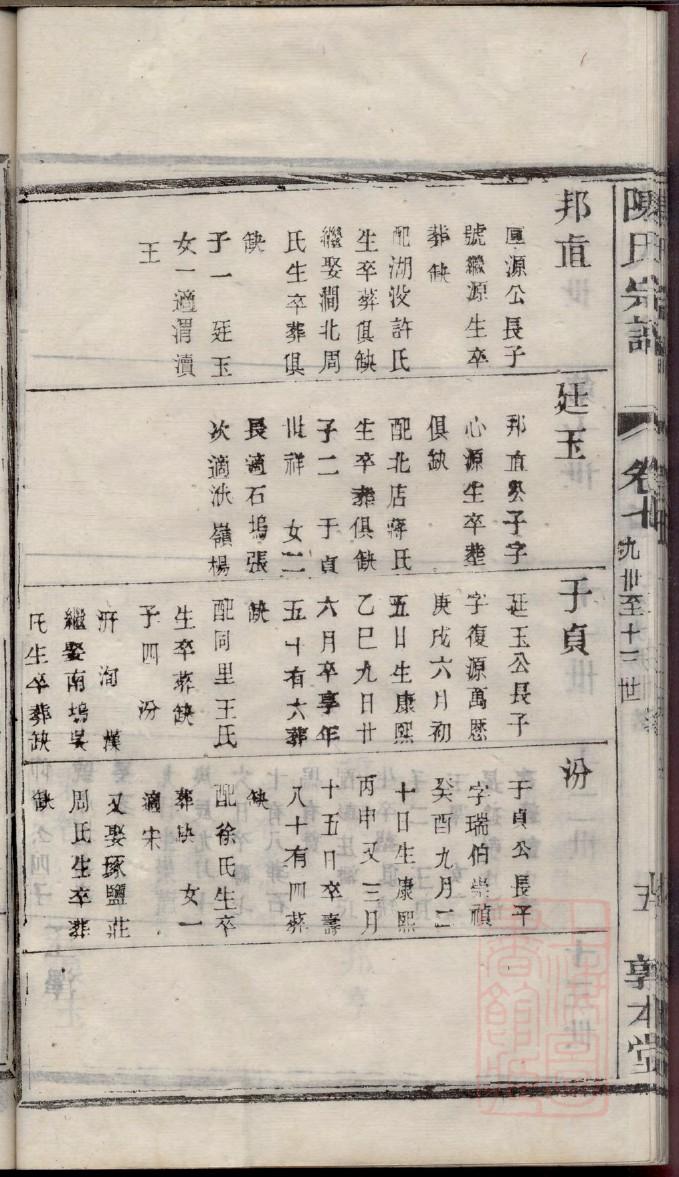 陳氏宗譜
卷十
九世至十三世
五
敦本堂
邦直
厚源公長子
號繼源生卒
葬缺
配湖没許氏
生卒葬俱缺
繼娶澗北周
氏生卒葬俱
缺
子一 廷玉
女一適渭瀆
王
廷玉
邦直公子字
心源生卒葬
俱缺
配北店蔣氏
生卒葬俱缺
子二 于貞
世祥 女二
長適石塢張
次適泱嶺楊
于貞
廷玉公長子
字復源萬厯
庚戌六月初
五日生康熙
乙巳九日廿
六月卒享年
五十有六葬
缺
配同里王氏
生卒葬缺
子四 汾
汧 洵 漢
繼娶南塢吳
氏生卒葬缺
汾
于貞公長子
字瑞伯崇禎
癸酉九月二
十日生康熙
丙申又三月
十五日卒壽
八十有四葬
缺
配徐氏生卒
葬缺 女一
適宋
又娶琢鹽莊
周氏生卒葬
缺